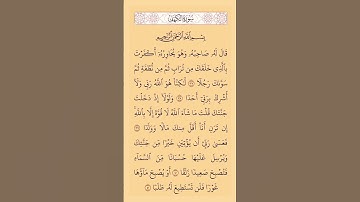 سورة الكهف
بِسْمِ اللَّهِ الرَّحْمَٰنِ الرَّحِيمِ
قَالَ لَهُ صَاحِبُهُ وَهُوَ يُحَاوِرُهُ أَكَفَرْتَ
بِالَّذِي خَلَقَكَ مِن تُرَابٍ ثُمَّ مِن نُّطْفَةٍ ثُمَّ
سَوَّىٰكَ رَجُلًا لَّٰكِنَّا هُوَ اللَّهُ رَبِّي وَلَا
أُشْرِكُ بِرَبِّي أَحَدًا وَلَوْلَا إِذْ دَخَلْتَ
جَنَّتَكَ قُلْتَ مَا شَاءَ اللَّهُ لَا قُوَّةَ إِلَّا بِاللَّهِ
إِن تَرَنِ أَنَا أَقَلَّ مِنكَ مَالًا وَوَلَدًا
فَعَسَىٰ رَبِّي أَن يُؤْتِيَنِ خَيْرًا مِّن جَنَّتِكَ
وَيُرْسِلَ عَلَيْهَا حُسْبَانًا مِّنَ السَّمَاءِ
فَتُصْبِحَ صَعِيدًا زَلَقًا أَوْ يُصْبِحَ مَاؤُهَا
غَوْرًا فَلَن تَسْتَطِيعَ لَهُ طَلَبًا